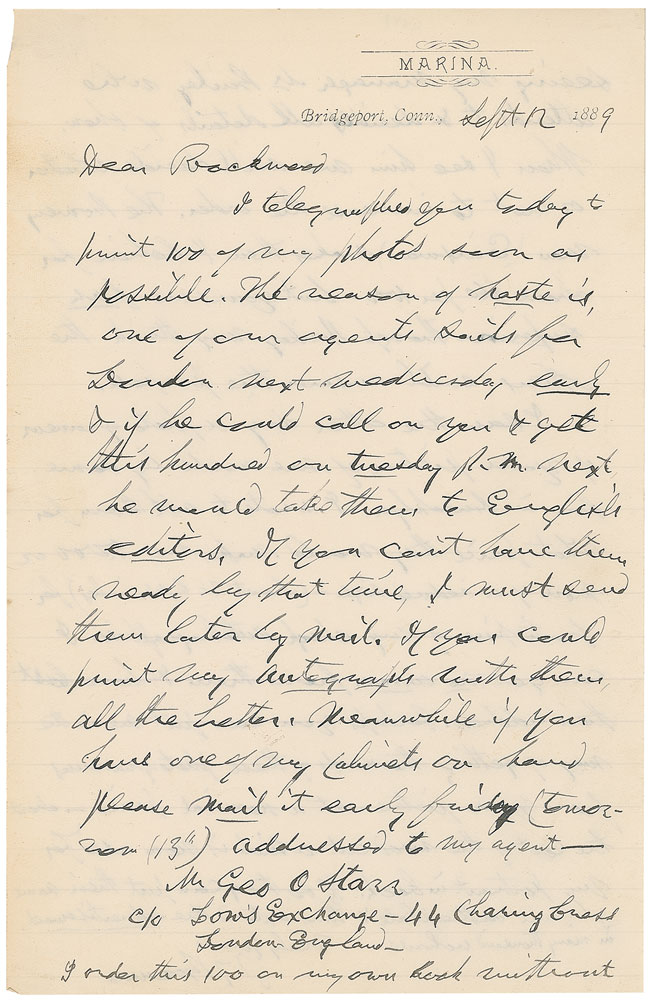 MARINA.
Bridgeport, Conn., Sept 12 1889
Dear Rockwood
I telegraphed you today to
print 100 of my photos soon as
possible. The reason of haste is,
one of our agents sails for
London next wednesday early
& if he could call on you & get
this hundred on tuesday P.M. next
he would take them to English
editors. If you can't have them
ready by that time, I must send
them later by mail. If you could
print my autograph with them,
all the better. Meanwhile if you
have one of my cabinets on hand
please mail it early friday (tomor-
row (13th) addressed to my agent—
Mr Geo O Starr
c/o Low's Exchange - 44 Charing Cross
London England—
I order this 100 on my own hook without